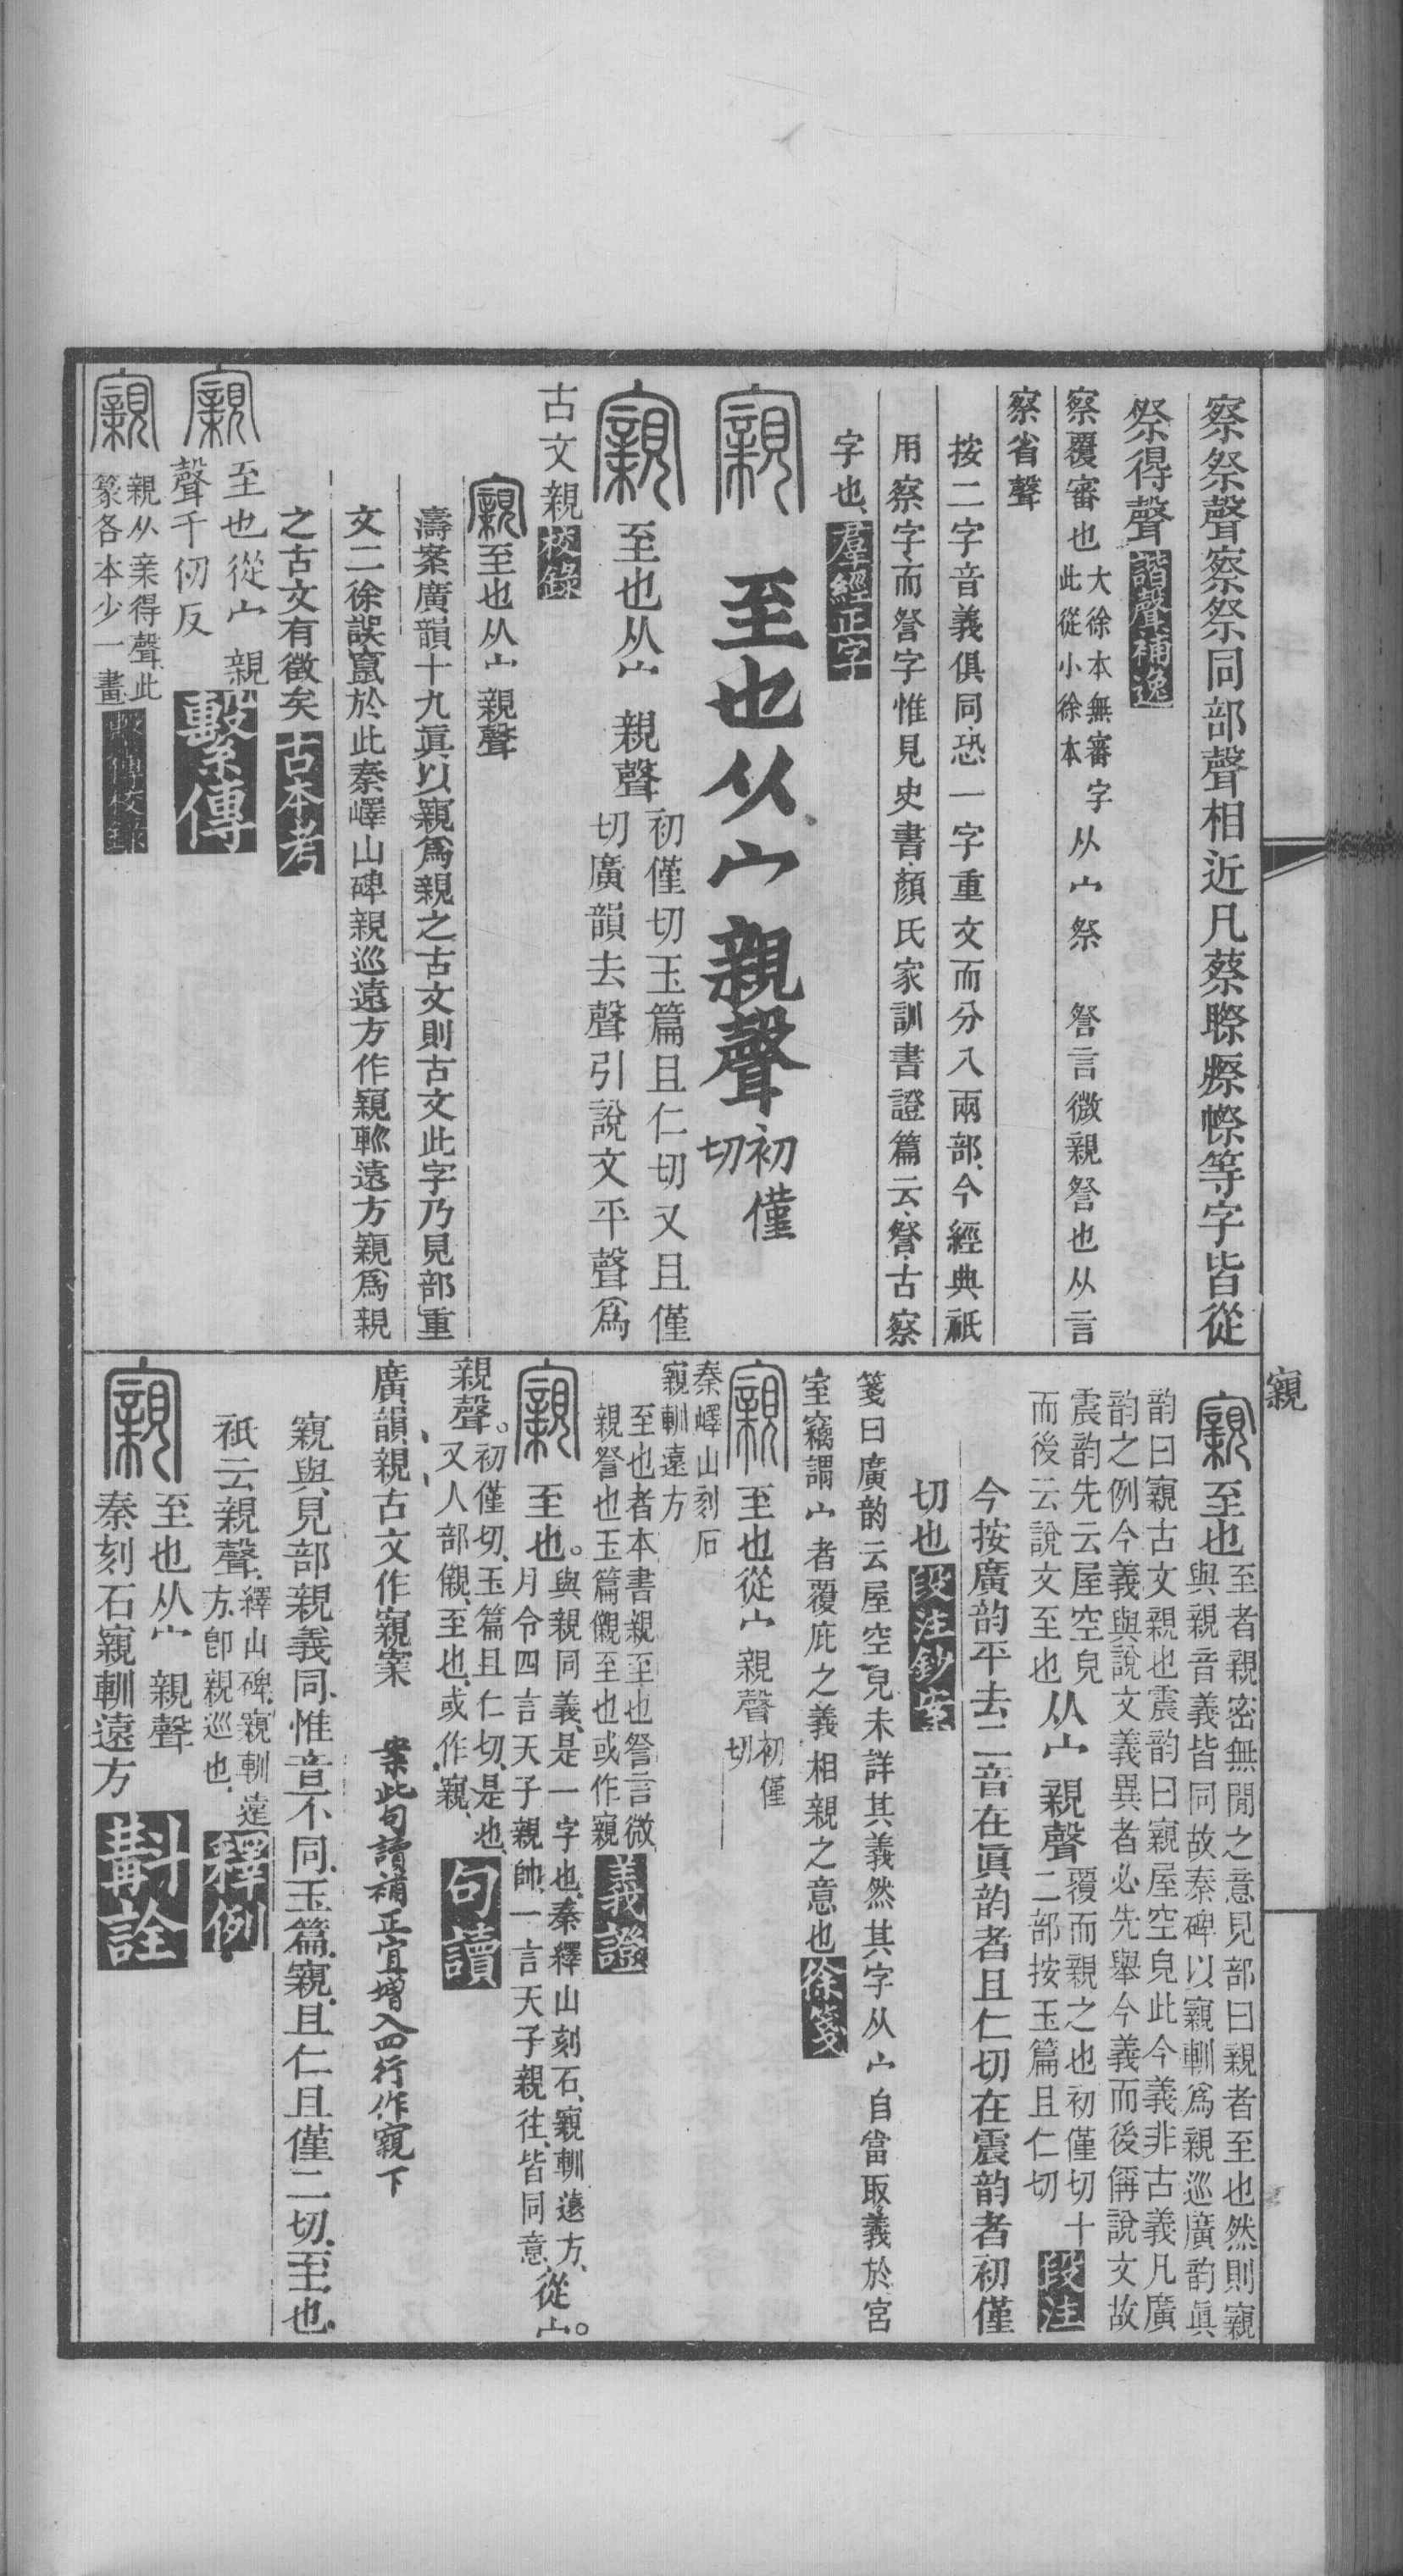 察祭聲察祭同部聲相近凡蔡瞭瘵幯等字皆從
祭得聲諧聲補逸
察覆審也大徐本無審字此從小徐本从宀祭 詧言微親詧也从言
察省聲
按二字音義俱同恐一字重文而分入兩部今經典祇
用察字而詧字惟見史書顏氏家訓書證篇云詧古察
字也羣經正字
至也从宀親聲初僅切
至也从宀親聲初僅切玉篇且仁切又且僅切廣韻去聲引說文平聲爲
古文親校錄
至也从宀親聲
濤案廣韻十九眞以寴爲親之古文則古文此字乃見部重
文二徐誤竄於此秦嶧山碑親巡遠方作寴䡅遠方寴爲親
之古文有徵矣古本考
至也從宀親聲千仞反繫傳
親从亲得聲此篆各本少一畫繫傳校錄
寴
至也至者親密無閒之意見部曰親者至也然則寴與親音義皆同故秦碑以寴䡅爲親巡廣韵眞
韵曰寴古文親也震韵曰寴屋空皃此今義非古義凡廣韵之例今義與說文義異者必先舉今義而後偁說文故
震韵先云屋空皃而後云說文至也从宀親聲覆而親之也初僅切十二部按玉篇且仁切段注
今按廣韵平去二音在眞韵者且仁切在震韵者初僅
切也段注鈔案
箋曰廣韵云屋空皃未詳其義然其字从宀自當取義於宮
室竊謂宀者覆庇之義相親之意也徐箋
至也從宀親聲初僅切
秦嶧山刻石寴䡅遠方
至也者本書親至也詧言微親詧也玉篇儭至也或作寴義證
至也。與親同義是一字也秦繹山刻石寴䡅遠方月令四言天子親帥一言天子親往皆同意從宀。
親聲。初僅切玉篇且仁切是也又人部儭至也或作寴句讀
廣韻親古文作寴案 案此句讀補正宜增入四行作寴下
寴與見部親義同惟音不同玉篇寴且仁且僅二切至也
祇云親聲繹山碑寴䡅遠方卽親巡也釋例
至也从宀親聲秦刻石寴䡅遠方斠詮